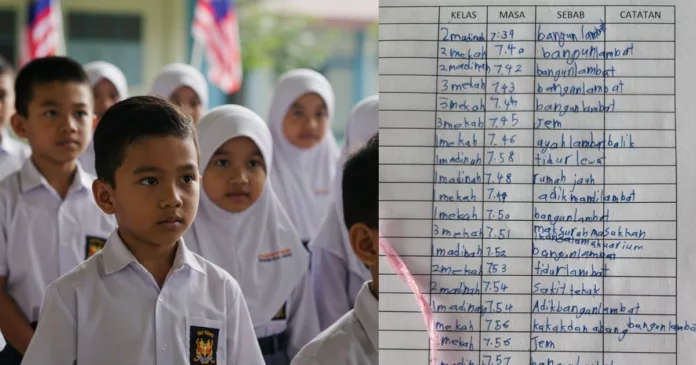 KELAS MASA SEBAB CATATAN
2 madinah 7:39 bangun lambat
2 mekah 7.40 bangun lambat
2 madinah 7.42 bangun lambat
3 mekah 7.43 bangun lambat
3 mekah 7.44 bangun lambat
3 mekah 7.45 Jem
1 mekah 7.46 ayah lambat balik
1 madinah 7.58 tidur lewa
1 madinah 7.48 rumah jauh
1 mekah adik mandi lambat
1 mekah 7:50 bangun lambat
3 mekah 7.51 masakkan
ikan dalam akuarium
1 madinah 7.52 bangun lambat
2 mekah 753 tidur lambat
2 madinah 7.54 Sakit tekak
1 madinah 7.54 Adik bangun lambat
mekah 7.56 kakak dan abang bangun lambat
1 mekah 7.56 Jem
7.57